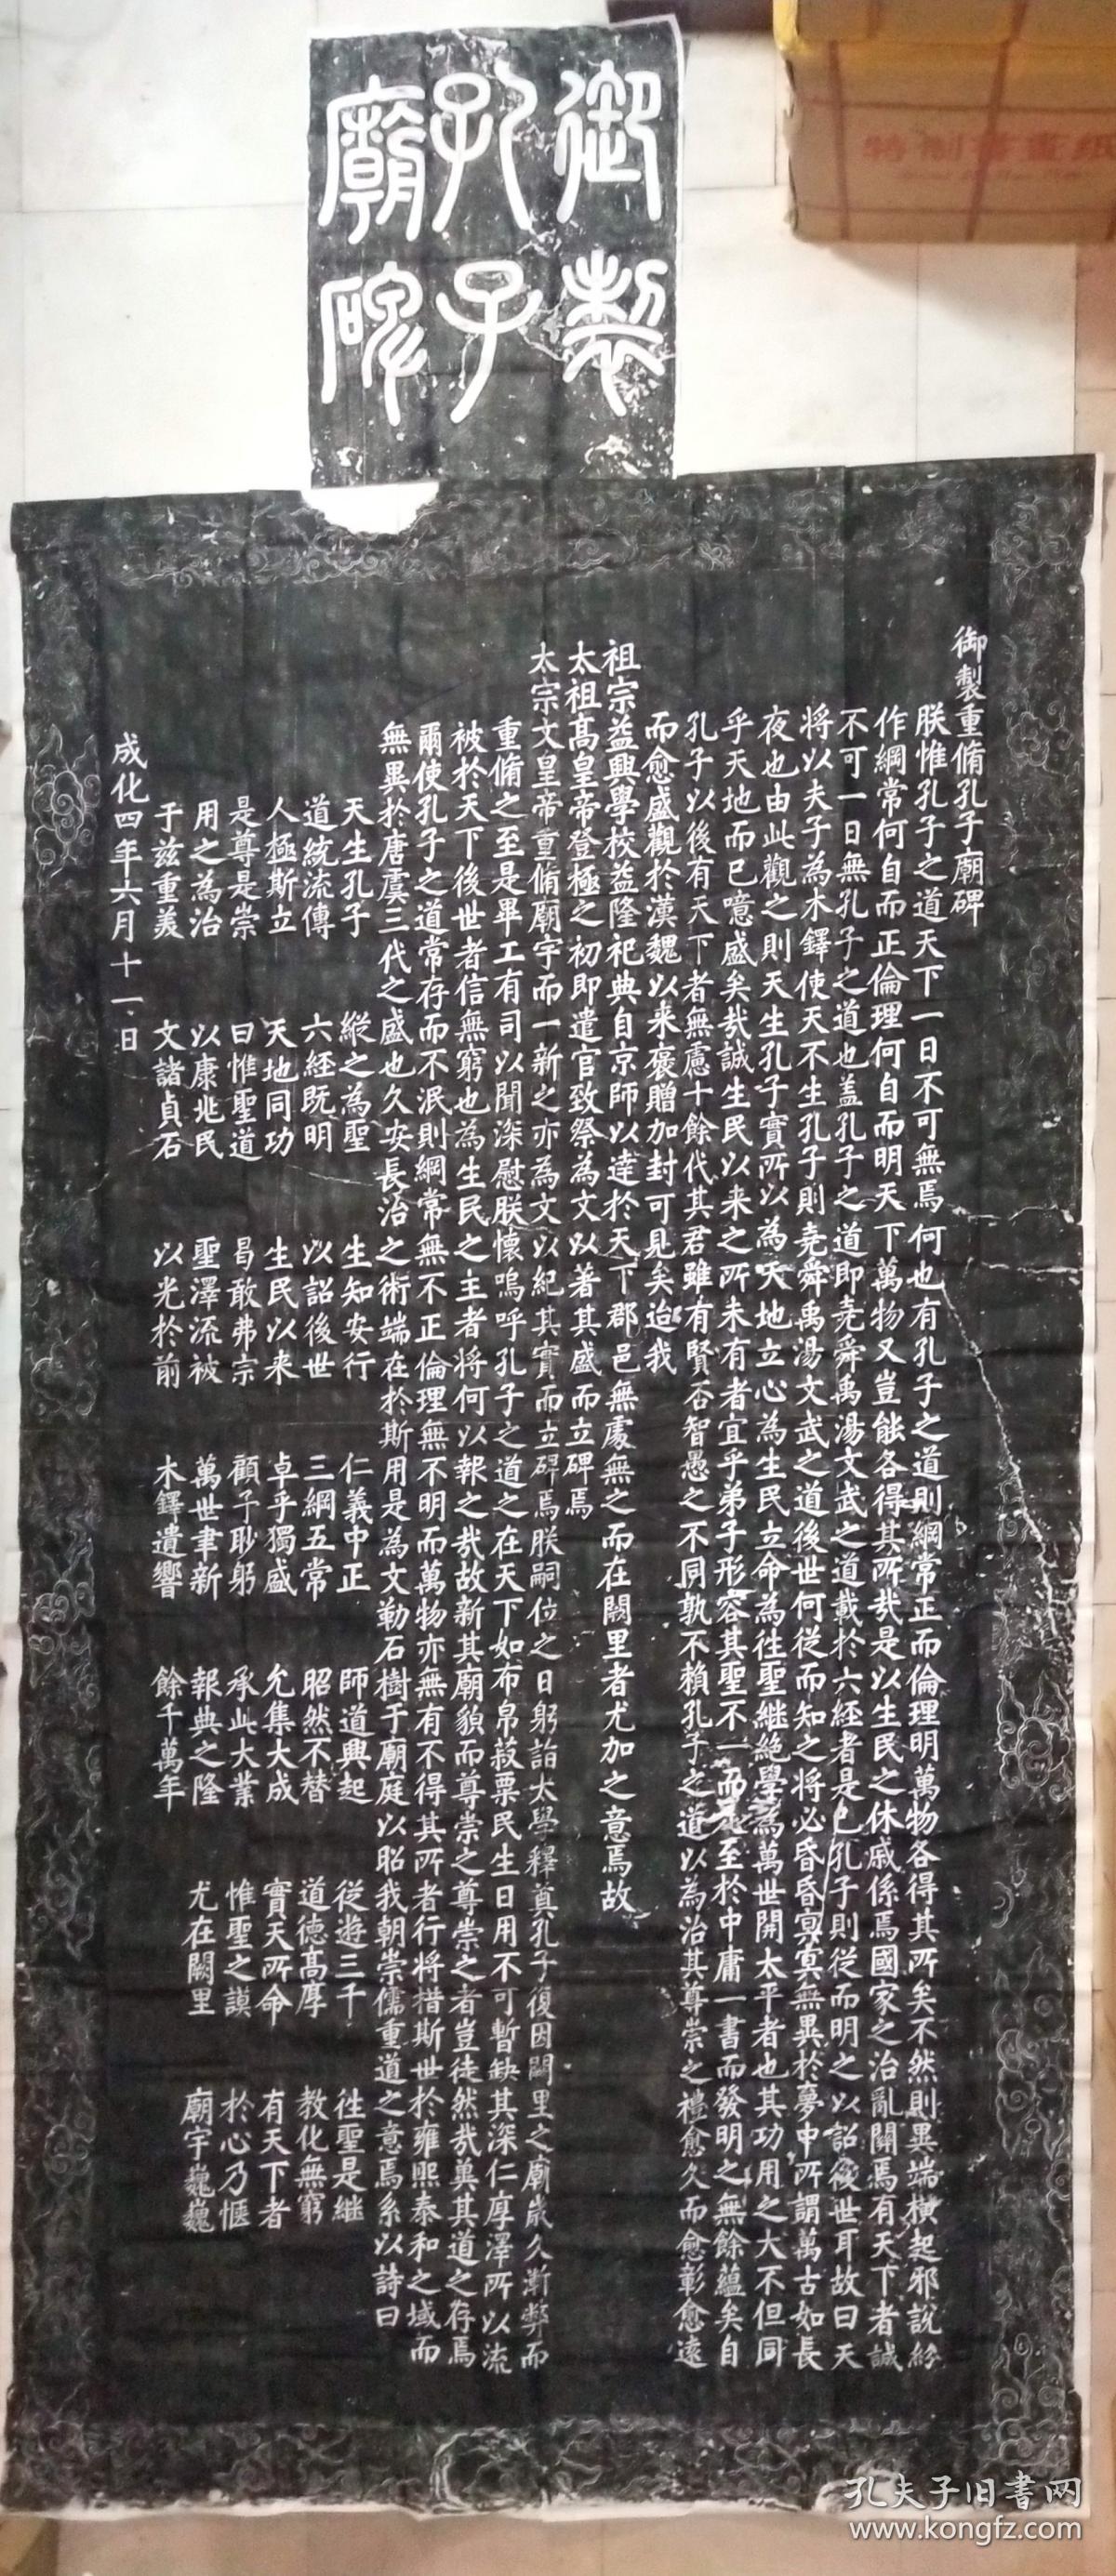 御製
孔子
廟碑
御製重脩孔子廟碑
朕惟孔子之道天下一日不可無焉何也有孔子之道則綱常正而倫理明萬物各得其所矣不然則異端橫起邪說紛
作綱常何自而正倫理何自而明天下萬物又豈能各得其所哉是以生民之休戚係焉國家之治亂關焉有天下者誠
不可一日無孔子之道也盖孔子之道即堯舜禹湯文武之道載於六経者是已孔子則從而明之以詔後世耳故曰天
将以夫子為木鐸使天不生孔子則堯舜禹湯文武之道後世何從而知之将必昏昏冥冥無異於夢中所謂萬古如長
夜也由此觀之則天生孔子實所以為天地立心為生民立命為徃聖継絶學為萬世開太平者也其功用之大不但同
乎天地而已噫盛矣哉誠生民以来之所未有者宜乎弟子形容其聖不一而足至於中庸一書而發明之無餘蘊矣自
孔子以後有天下者無慮十餘代其君雖有賢否智愚之不同孰不賴孔子之道以為治其尊崇之禮愈久而愈彰愈遠
而愈盛觀於漢魏以来褒贈加封可見矣迨我
祖宗益興學校益隆祀典自京師以達於天下郡邑無處無之而在闕里者尤加之意焉故
太祖髙皇帝登極之初即遣官致祭為文以著其盛而立碑焉
太宗文皇帝重脩廟宇而一新之亦為文以紀其實而立碑焉朕嗣位之日躬詣太學釋奠孔子復因闕里之廟嵗久漸弊而
重脩之至是畢工有司以聞深慰朕懷嗚呼孔子之道之在天下如布帛菽粟民生日用不可暫缺其深仁厚澤所以流
被於天下後世者信無窮也為生民之主者将何以報之哉故新其廟貌而尊崇之尊崇之者豈徒然哉冀其道之存焉
爾使孔子之道常存而不泯則綱常無不正倫理無不明而萬物亦無有不得其所者行将措斯世於雍熙泰和之域而
無異於唐虞三代之盛也久安長治之術端在於斯用是為文勒石樹于廟庭以昭我朝崇儒重道之意焉系以詩曰
天生孔子　縱之為聖　生知安行　仁義中正　師道興起　從遊三千　徃聖是継
道統流傳　六経既明　以詔後世　三綱五常　昭然不替　道德髙厚　教化無窮
人極斯立　天地同功　生民以来　卓乎獨盛　允集大成　實天所命　有天下者
是尊是崇　曰惟聖道　曷敢弗宗　顧予眇躬　承此大業　惟聖之謨　於心乃愜
用之為治　以康兆民　聖澤流被　萬世聿新　報典之隆　尤在闕里　廟宇巍巍
于兹重美　文諸貞石　以光於前　木鐸遺響　餘千萬年
成化四年六月十一日
孔夫子旧书网
www.kongfz.com